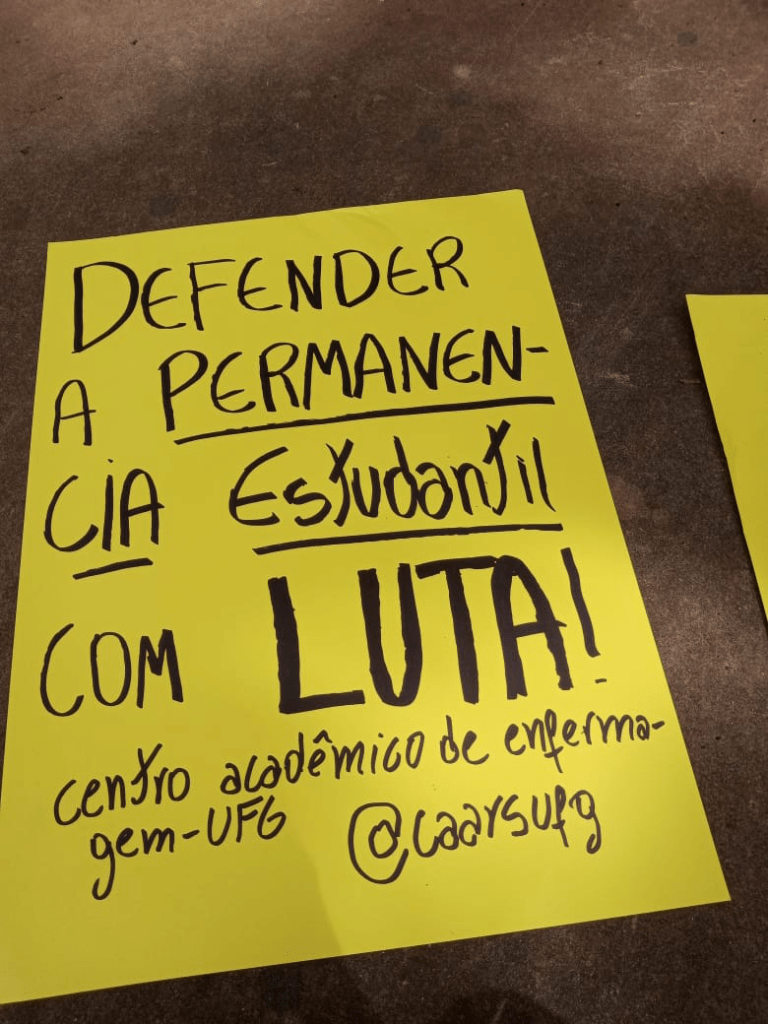 DEFENDER
A PERMANEN-
CIA EstudantiL
COM LUTA!
centro acadêmico de enferma-
gem-UFG @caarsufg